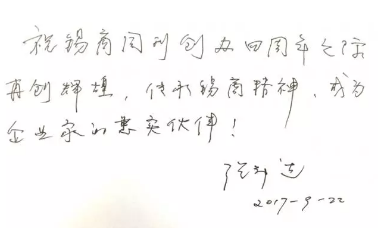 祝锡商周刊创办四周年之际
再创辉煌，传承锡商精神，成为
企业家的忠实伙伴！
2017-9-22